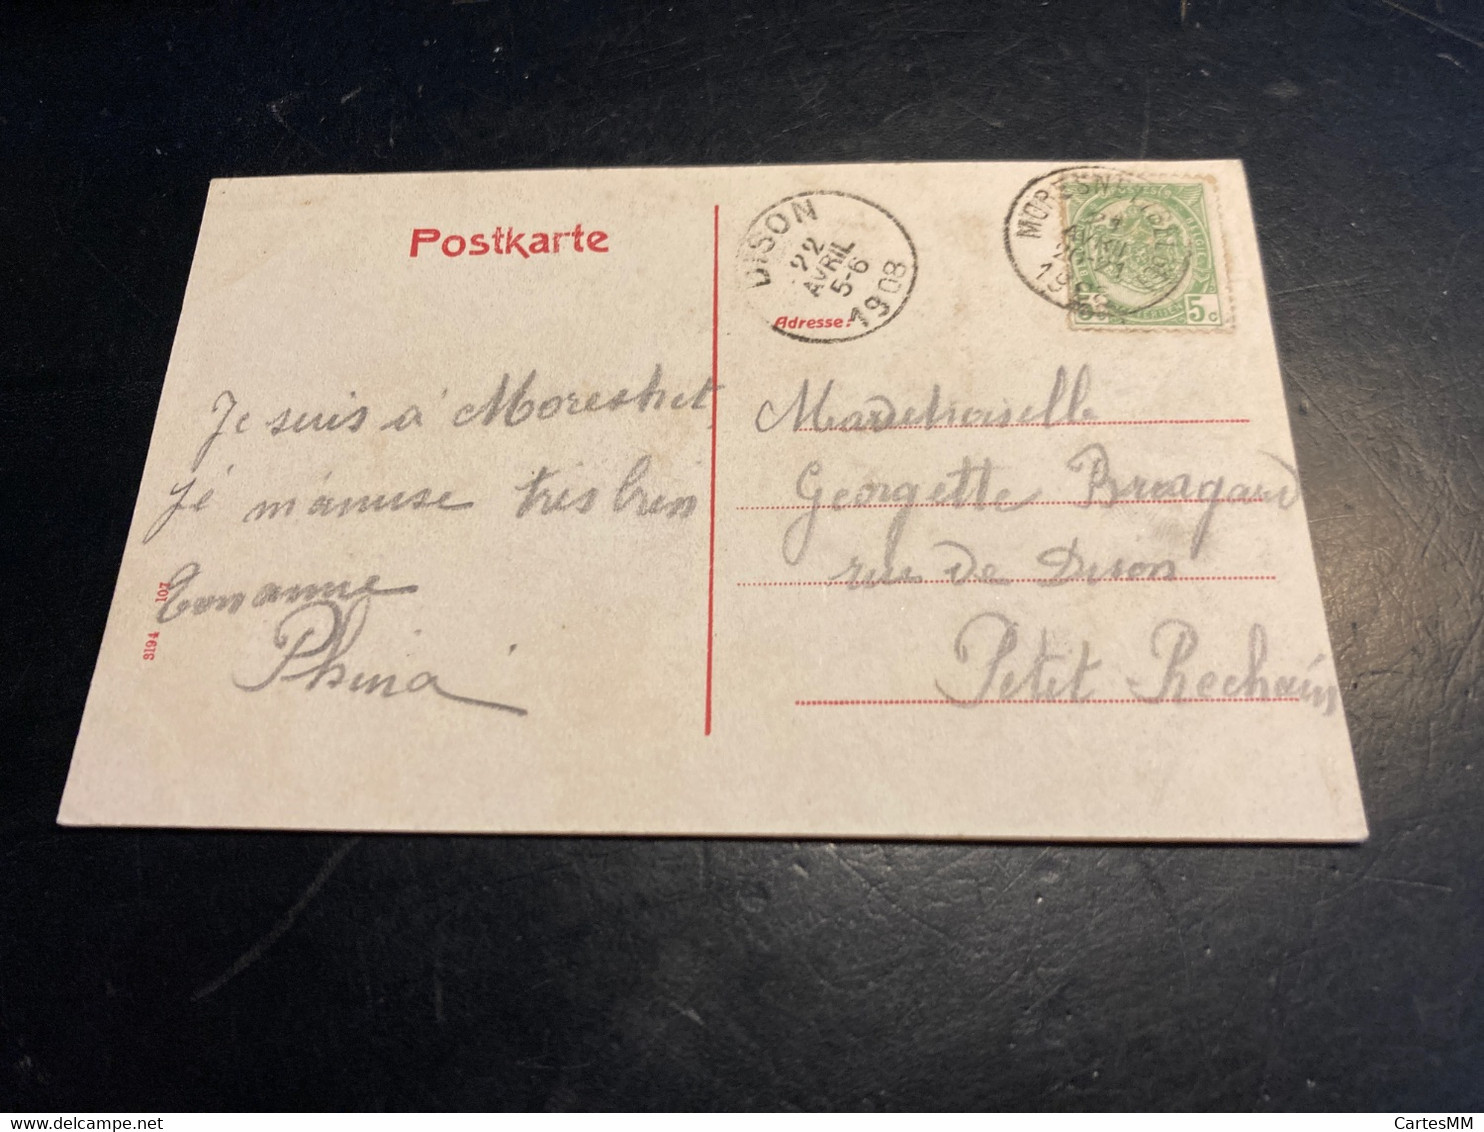 Postkarte
DISON
22
AVRIL
5-6
1908
Adresse:
MORESN
21
AVRIL
1908
5 C
Je suis à Moresnet
je m'amuse très bien
Ton amie
Phina
3194 107
Mademoiselle
Georgette Bragard
rue de Dison
Petit-Rechain
CartesMM